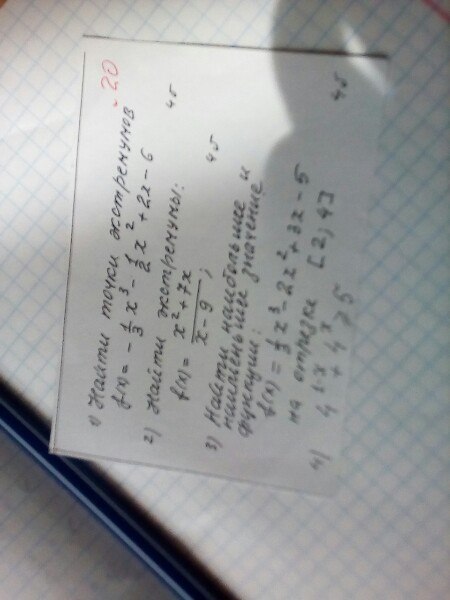 .20
1) Найти точки экстремумов
f(x) = -1/3 x³ - 1/2 x² + 2x - 6
4б
2) Найти экстремумы:
f(x) = x² + 7x / x - 9;
4б
3) Найти наибольшие и
наименьшии значение
функции:
f(x) = 1/3 x³ - 2x² + 3x - 5
на отрезки [2; 4]
4б
4) 4^(1-x) + 4^x ≥ 5